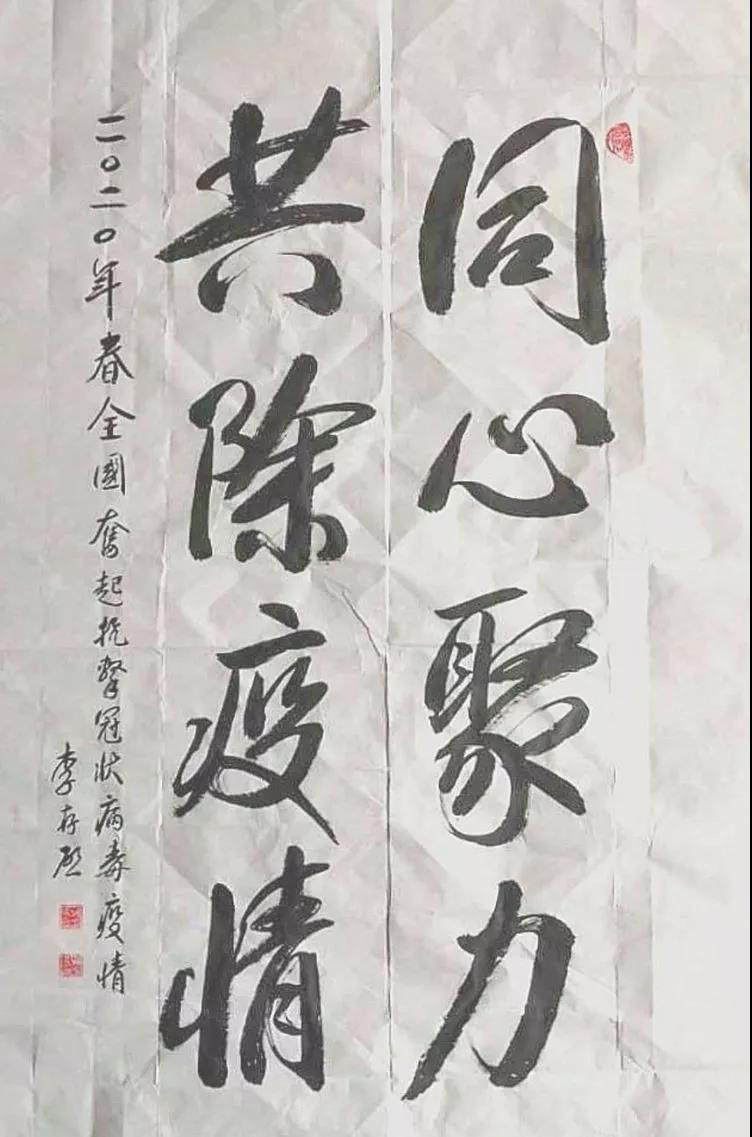 同心聚力
共除疫情
二〇二〇年春全國奮起抗擊冠状病毒疫情
李存